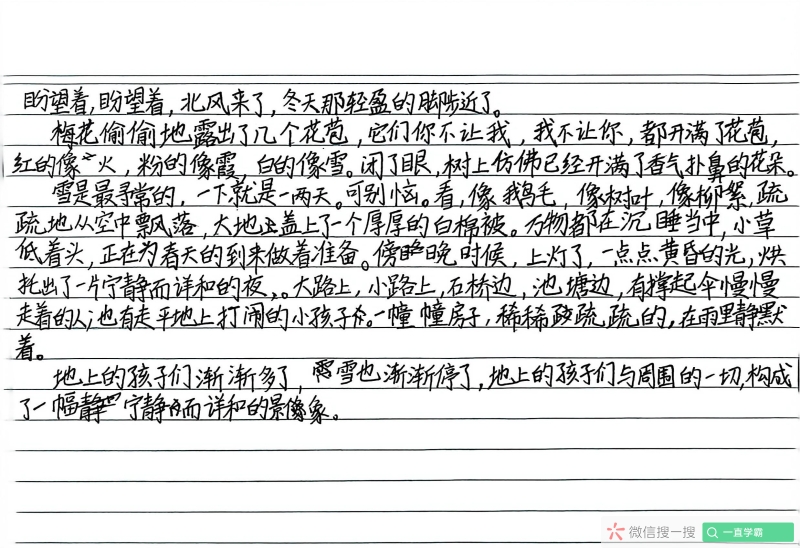 盼望着,盼望着,北风来了,冬天那轻盈的脚步近了。
梅花偷偷地露出了几个花苞,它们你不让我,我不让你,都开满了花苞,
红的像火,粉的像霞,白的像雪。闭了眼,树上仿佛已经开满了香气扑鼻的花朵。
雪是最寻常的,一下就是一两天。可别恼。看,像鹅毛,像树叶,像柳絮,疏
疏地从空中飘落,大地上盖上了一个厚厚的白棉被。万物都在沉睡当中,小草
低着头,正在为春天的到来做着准备。傍晚时候,上灯了,一点点黄昏的光,烘
托出了一片宁静而详和的夜。大路上,小路上,石桥边,池塘边,有撑起伞慢慢
走着的人;也有走平地上打闹的小孩子。一幢幢房子,稀稀疏疏的,在雨里静默
着。
地上的孩子们渐渐多了,雪也渐渐停了,地上的孩子们与周围的一切,构成
了一幅宁静而详和的景象。
微信搜一搜 一直学霸